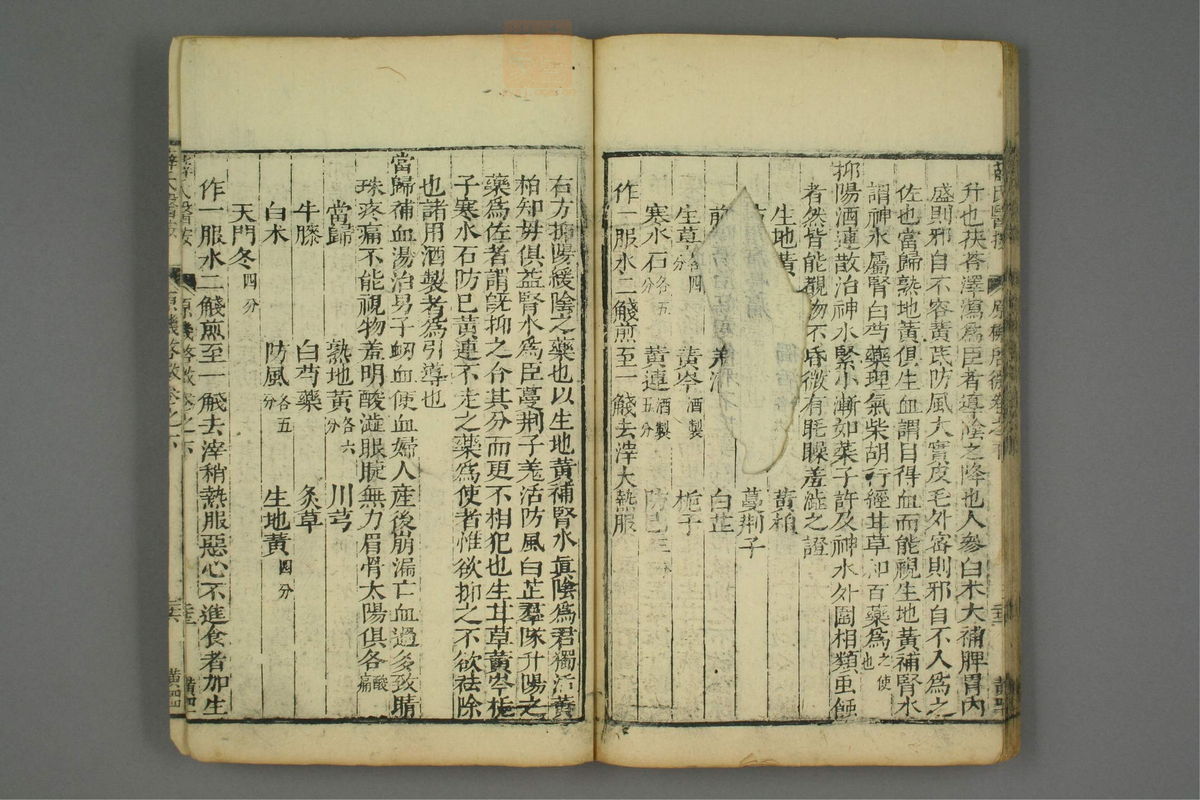 升也茯苓澤瀉為臣者導陰之降也人參白术大補脾胃內
盛則邪自不容黃芪防風大實皮毛外密則邪自不入為之
佐也當歸熟地黃俱生血謂目得血而能視生地黃補腎水
謂神水屬腎白芍藥理氣柴胡行經甘草和百藥為之使也
抑陽酒連散治神水緊小漸如菜子許及神水外圍相類虫蝕
者然皆能覩物不昏微有眊矂羞澁之證
生地黃 黃栢
蔓荆子
前 白芷
生草各四分 黃芩酒製 梔子
寒水石各五分 黃連酒製五分 防已三分
作一服水二盞煎至一盞去滓大熱服
右方抑陽緩陰之藥也以生地黃補腎水真陰為君獨活黃
柏知毋俱益腎水為臣蔓荆子羗活防風白芷羣隊升陽之
藥為佐者謂旣抑之令其分而更不相犯也生甘草黃芩梔
子寒水石防已黃連不走之藥為使者惟欲抑之不欲祛除
也諸用酒製者為引導也
當歸補血湯治男子衂血便血婦人産後崩漏亡血過多致睛
珠疼痛不能視物羞明酸澁眼睫無力眉骨太陽俱各酸痛
當歸 熟地黃各六分 川芎
牛膝 白芍藥 炙草
白术 防風各五分 生地黃四分
天門冬四分
作一服水二盞煎至一盞去滓稍熱服惡心不進食者加生
薛氏醫按 原機啓微卷之下